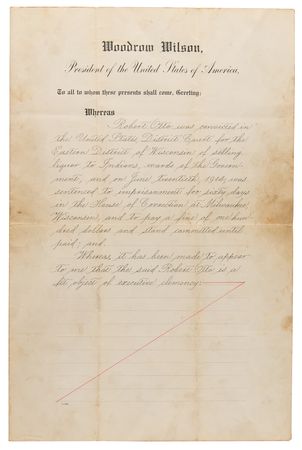 Woodrow Wilson,
President of the United States of America,
To all to whom these presents shall come, Greeting:
Whereas
Robert Otto was convicted in
the United States District Court for the
Eastern District of Wisconsin of selling
liquor to Indians, wards of the Govern-
ment, and on June twentieth, 1916, was
sentenced to imprisonment for sixty days
in the House of Correction at Milwaukee,
Wisconsin, and to pay a fine of one hun-
dred dollars and stand committed until
paid; and,
Whereas, it has been made to appear
to me that the said Robert Otto is a
fit object of executive clemency: